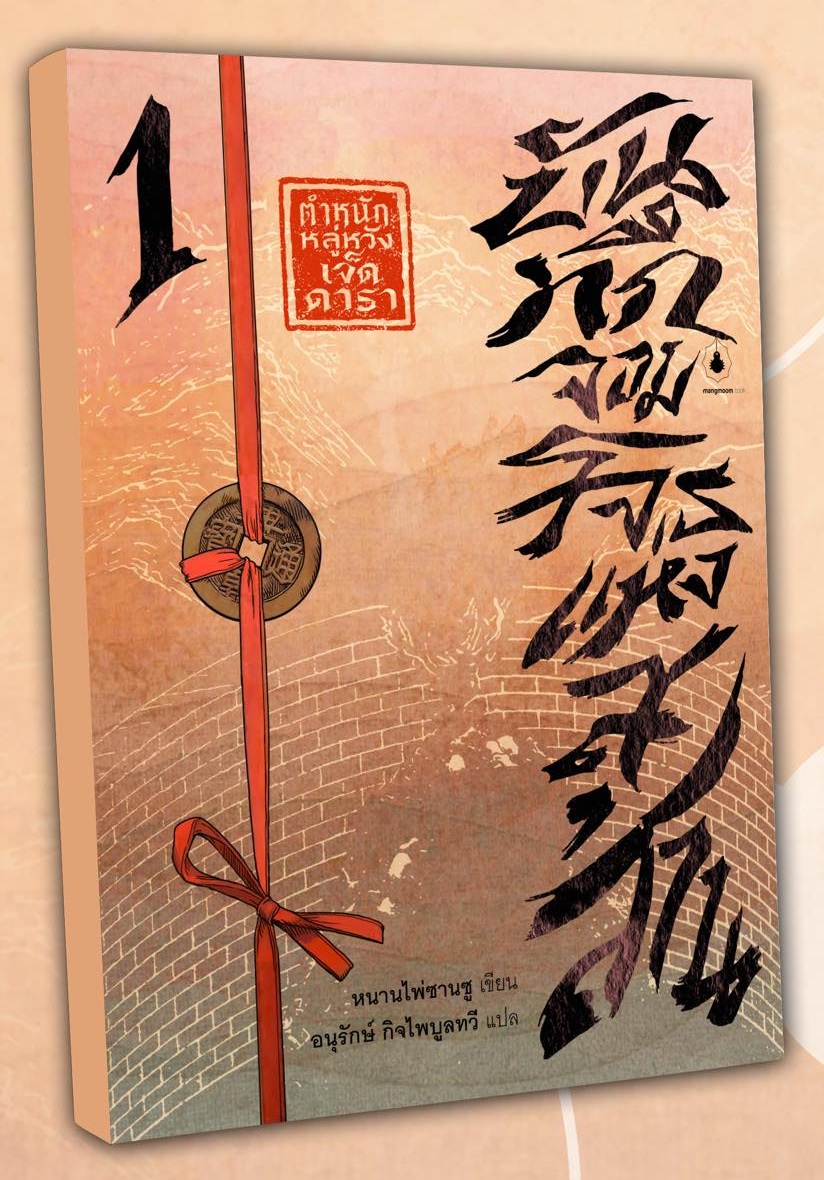 1
ตำหนัก
หลู่หวัง
เจ็ด
ดารา
บัน
ทึก
จอม
โจร
แห่ง
สุ
สาน
mangmoom book
หนานไพ่ซานซู เขียน
อนุรักษ์ กิจไพบูลทวี แปล